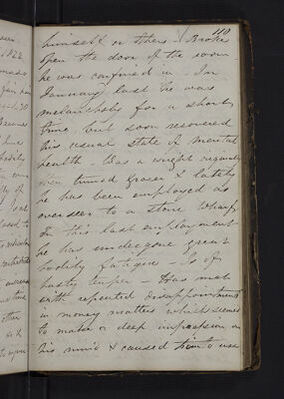 110
himself or others - Broke
open the door of the room
he was confined in. In
January last he was
melancholy for a short
time, but soon recovered
his usual state of mental
health - Was a wright originally
then turned grocer & lately
he has been employed as
overseer to a stone wharf,
In this last employment
he has undergone great
bodily fatigue - Is of
hasty temper - Has met
with repeated disappointments
in money matters which seemed
to make a deep impression on
his mind & caused him to use